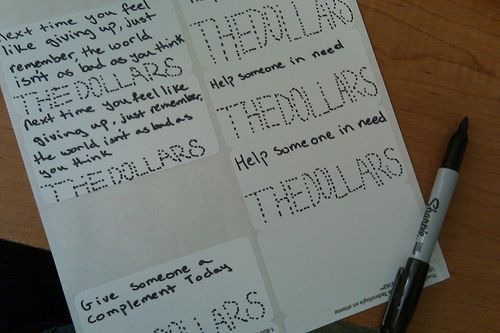 next time you feel
like giving up, just
remember, the world
isn't as bad as you think
THEDOLLARS
next time you feel like
giving up, just remember,
the world isn't as bad as
you think
THEDOLLARS
Give someone a
complement Today
THEDOLLARS
THEDOLLARS
Help someone in need
THEDOLLARS
Help someone in need
THEDOLLARS
Sharpie